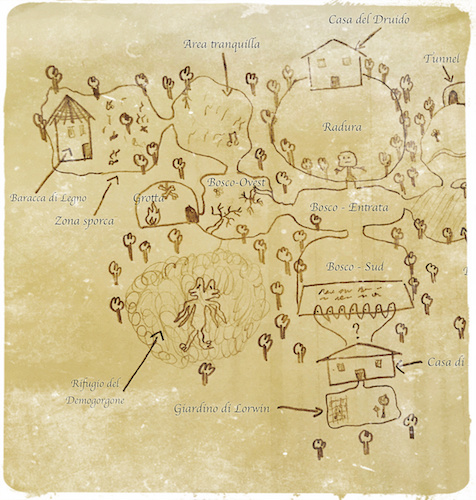 Casa del Druido
Area tranquilla
Tunnel
Radura
Baracca di Legno
Bosco-Ovest
Grotta
Zona sporca
Bosco - Entrata
Bosco - Sud
?
Casa di
Rifugio del
Demogorgone
Giardino di Lorwin